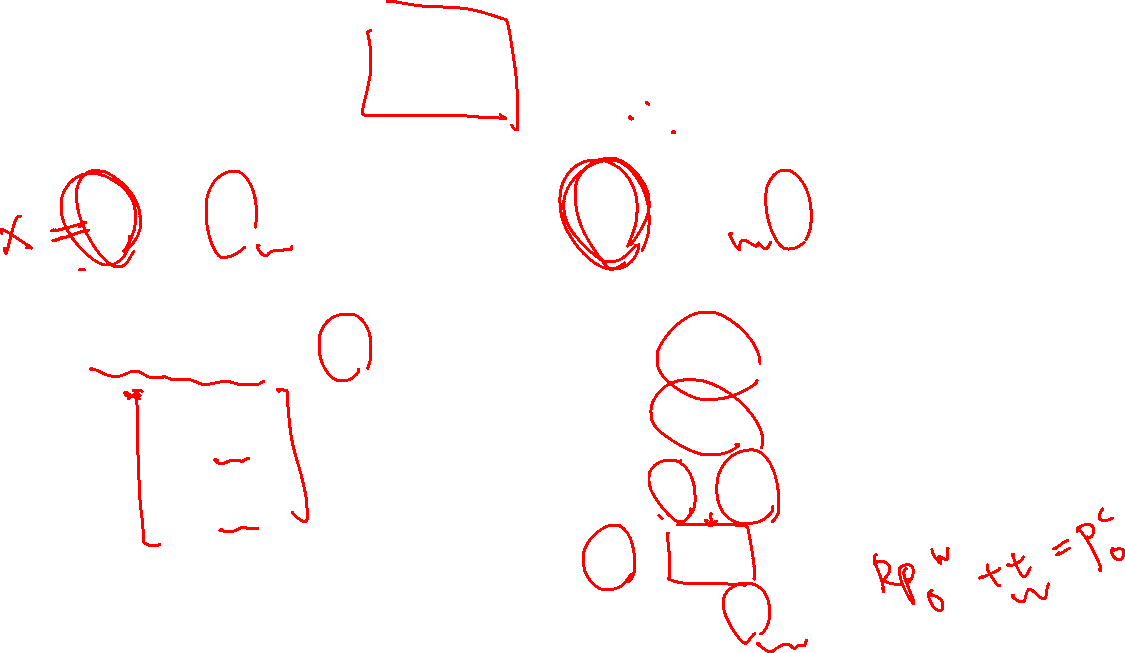 x =
Rp₀ʷ + t = p₀ᶜ